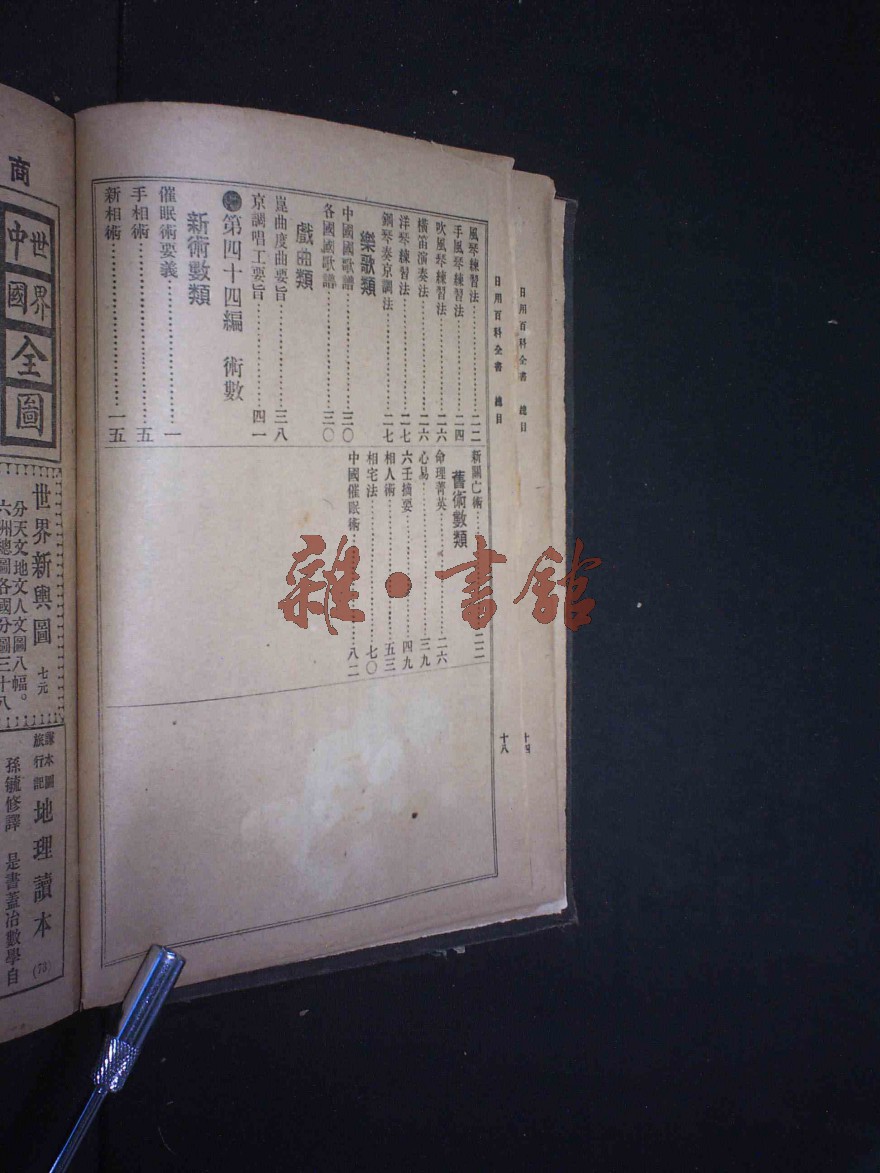 日用百科全書 總目
十四
日用百科全書 總目
十八
風琴練習法 二二
手風琴練習法 二四
吹風琴練習法 二六
橫笛演奏法 二六
洋琴練習法 二七
鋼琴奏京調法 二七
樂歌類
中國國歌譜 三〇
各國國歌譜 三〇
戲曲類
崑曲度曲要旨 三八
京調唱工要旨 四一
第四十四編 術數
新術數類
催眠術要義 一
手相術 五
新相術 一五
新關亡術 二二
舊術數類
命理菁英 二六
心易 三九
六壬摘要 四九
相人術 五三
相宅法 七〇
中國催眠術 八二
雜·書館
商
世界
中國
全
圖
世界新輿圖 七元
分天文地文人文圖八幅。
六洲總圖各國分圖三十八
旅行記 地理讀本
孫毓修譯 是書蓋冶數學自
(75)